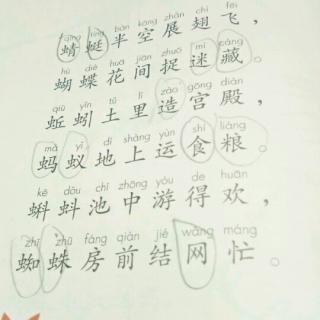 qīng tíng bàn kōng zhǎn chì fēi
蜻蜓半空展翅飞，
hú dié huā jiān zhuō mí cáng
蝴蝶花间捉迷藏。
qiū yǐn tǔ lǐ zào gōng diàn
蚯蚓土里造宫殿，
mǎ yǐ dì shàng yùn shí liáng
蚂蚁地上运食粮。
kē dǒu chí zhōng yóu de huān
蝌蚪池中游得欢，
zhī zhū fáng qián jié wǎng máng
蜘蛛房前结网忙。